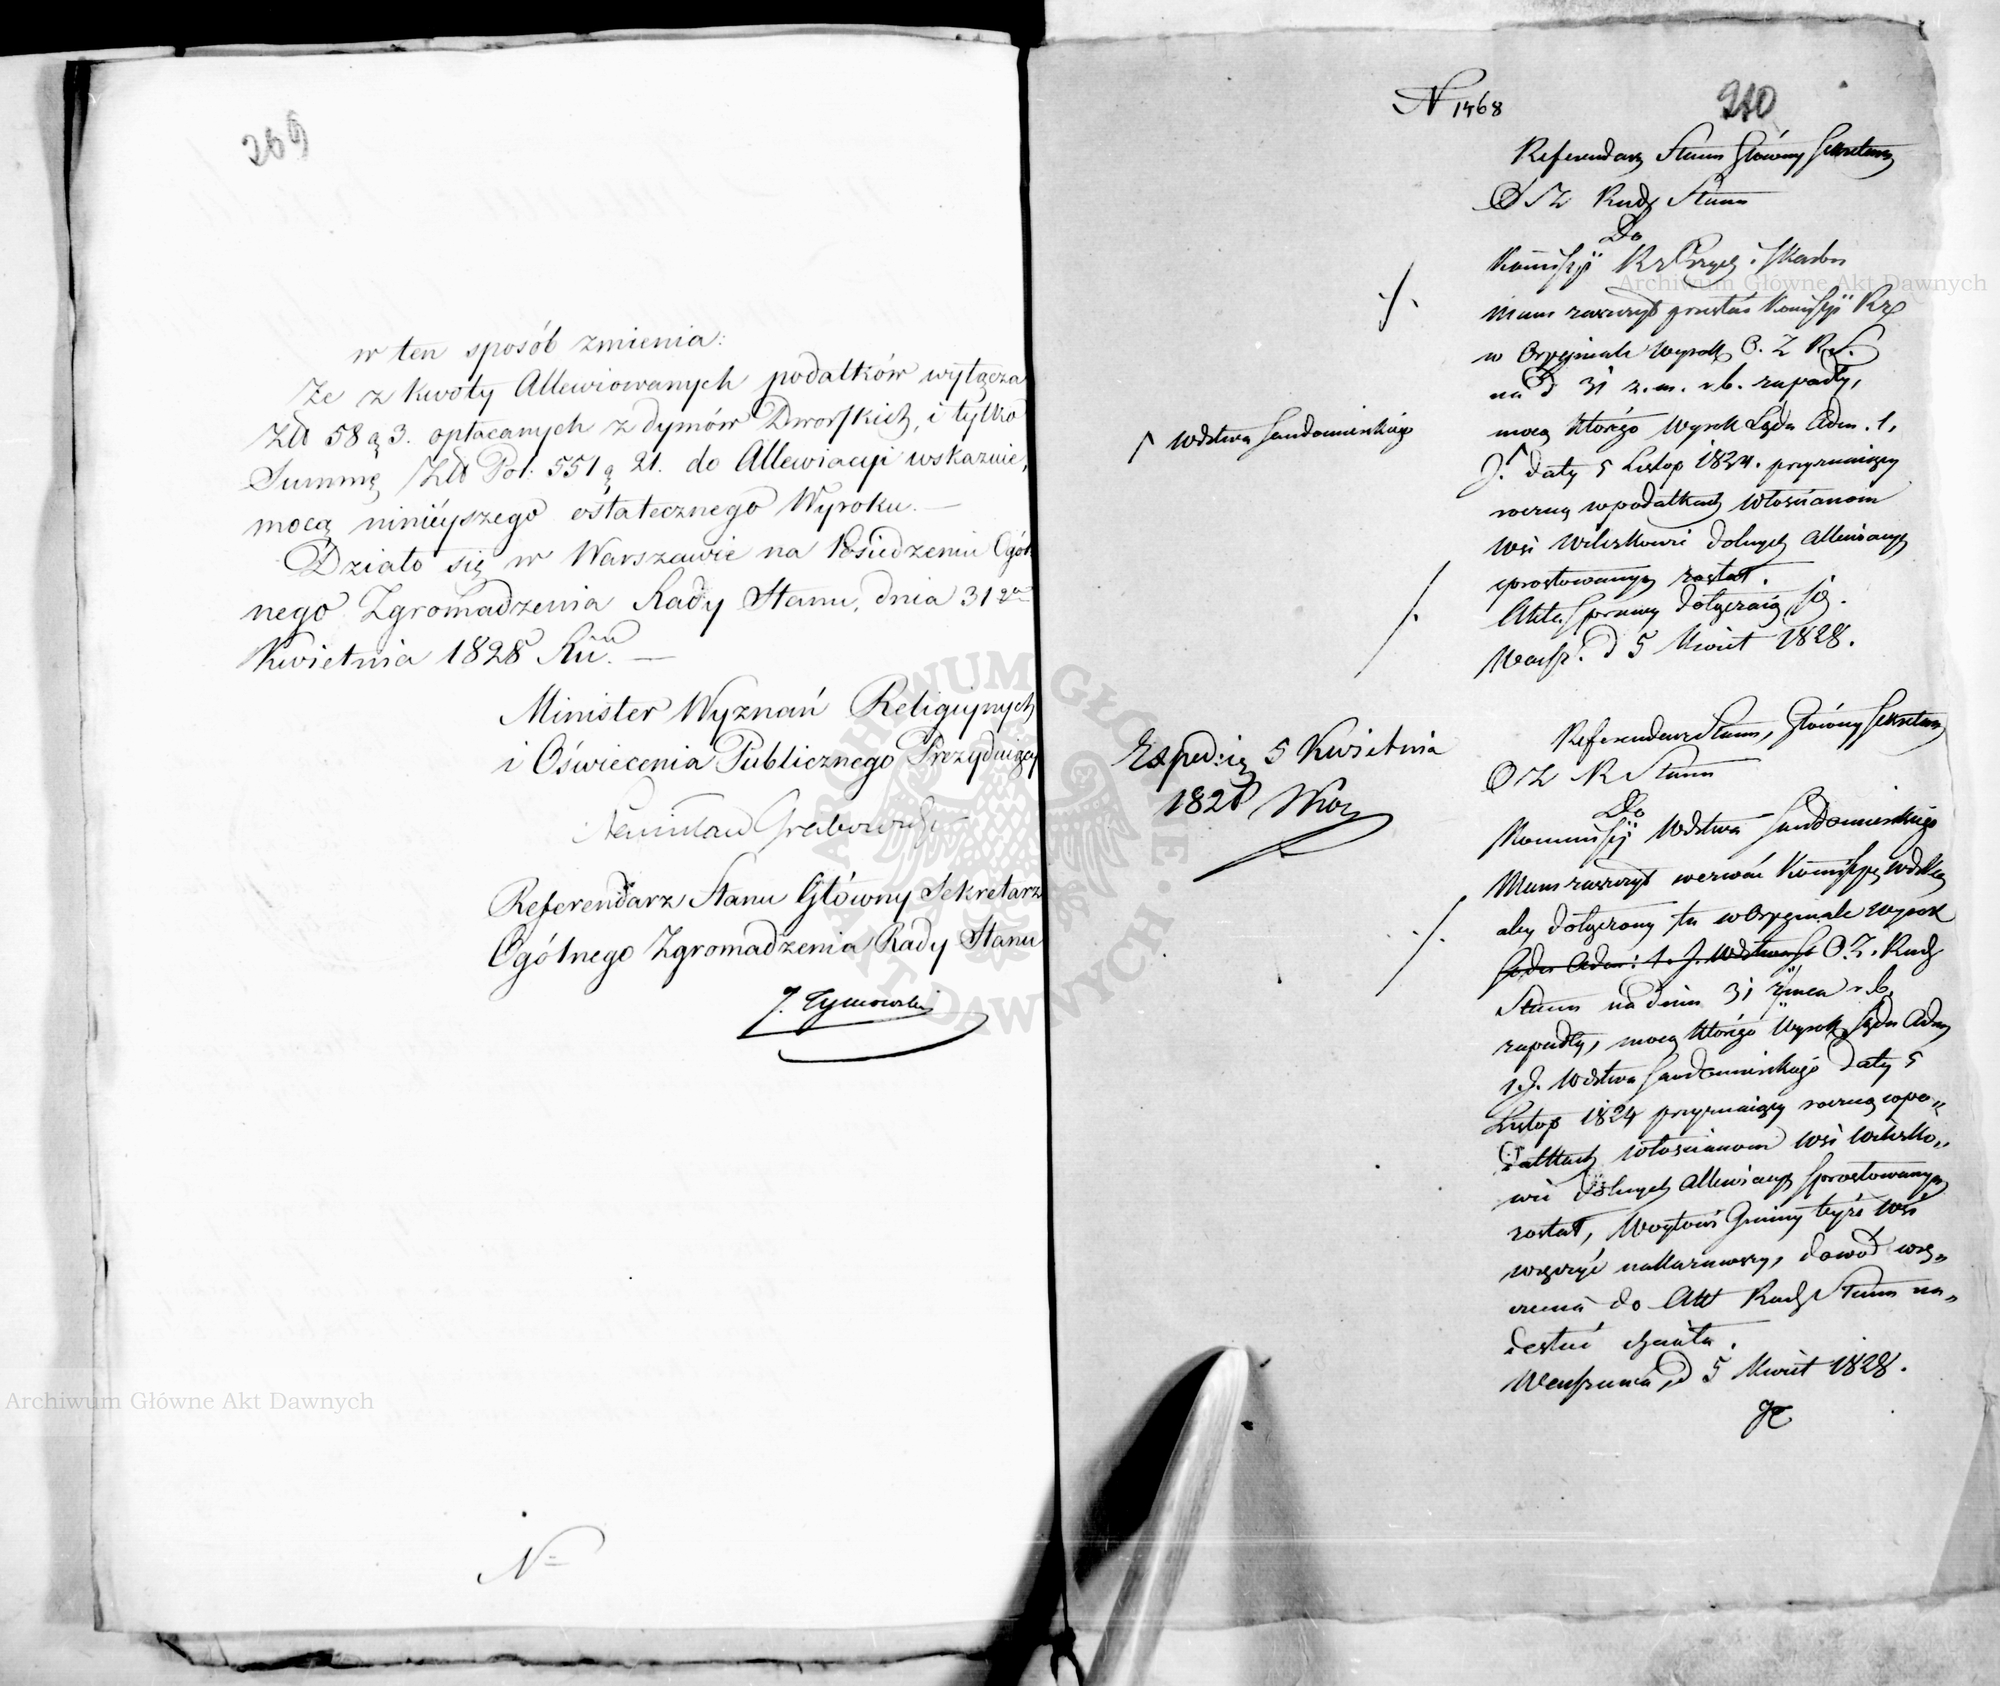 269
w ten sposób zmienia:
Że z kwoty Allewiowanych podatków wyłącza
Złt 58 g 3. opłacanych z dymów Dworskich, i tylko
Summę Złt Pol. 551 g 21. do Allewiacyi wskazuie,
mocą ninieyszego ostatecznego Wyroku. —
Działo się w Warszawie na Posiedzeniu Ogól
nego Zgromadzenia Rady Stanu, dnia 31 go
Kwietnia 1828 Ru. —
Minister Wyznań Religiynych
i Oświecenia Publicznego Prezyduiący
Stanisław Grabowski
Referendarz Stanu Główny Sekretarz
Ogólnego Zgromadzenia Rady Stanu
J. Tymowski
N
N 1468
210
Referendarz Stanu Główny Sekretarz
O Z Rady Stanu
Do
Komissyi Rz Przych. i Skarbu
Mam zaszczyt przesłać Komissyi Rz
w Oryginale Wyrok O. Z R. S.
na d 31 z. m. r. b. zapadły,
mocą którego Wyrok Sądu Adm. 1.
J. daty 5 Listop 1824. przyznaiący
roczną w podatkach włościanom
Wsi Wilczkowic dolnych Allewiacyą
sprostowanym został.
Akta sprawy dołączaią się.
Warsz. d 5 Kwiet 1828.
Wdztwa Sandomirskiego
Expedię 5 Kwietnia
1828
Referendarz Stanu, Główny Sekretarz
O Z R Stanu
Do
Kommissyi Wdztwa Sandomirskiego
Mam zaszczyt wezwać Komissyę Wdzką
aby dołączony tu w Oryginale Wyrok
Sądu Adm: 1. J. Wdztwa O. Z. Rady
Stanu na dniu 31 z. m. r. b.
zapadły, mocą którego Wyrok Sądu Adm
1 J. Wdztwa Sandomirskiego daty 5
Listop 1824 przyznaiący roczną w po„
datkach włościanom Wsi Wilczko„
wic dolnych Allewiacyą sprostowanym
został, Woytowi Gminy teyże Wsi
wręczyć nakazawszy, dowód wrę„
czenia do Akt Rady Stanu na„
desłać chciała.
Warszawa, d 5 Kwiet 1828.
Archiwum Główne Akt Dawnych
Archiwum Główne Akt Dawnych
ARCHIWUM GŁÓWNE AKT DAWNYCH